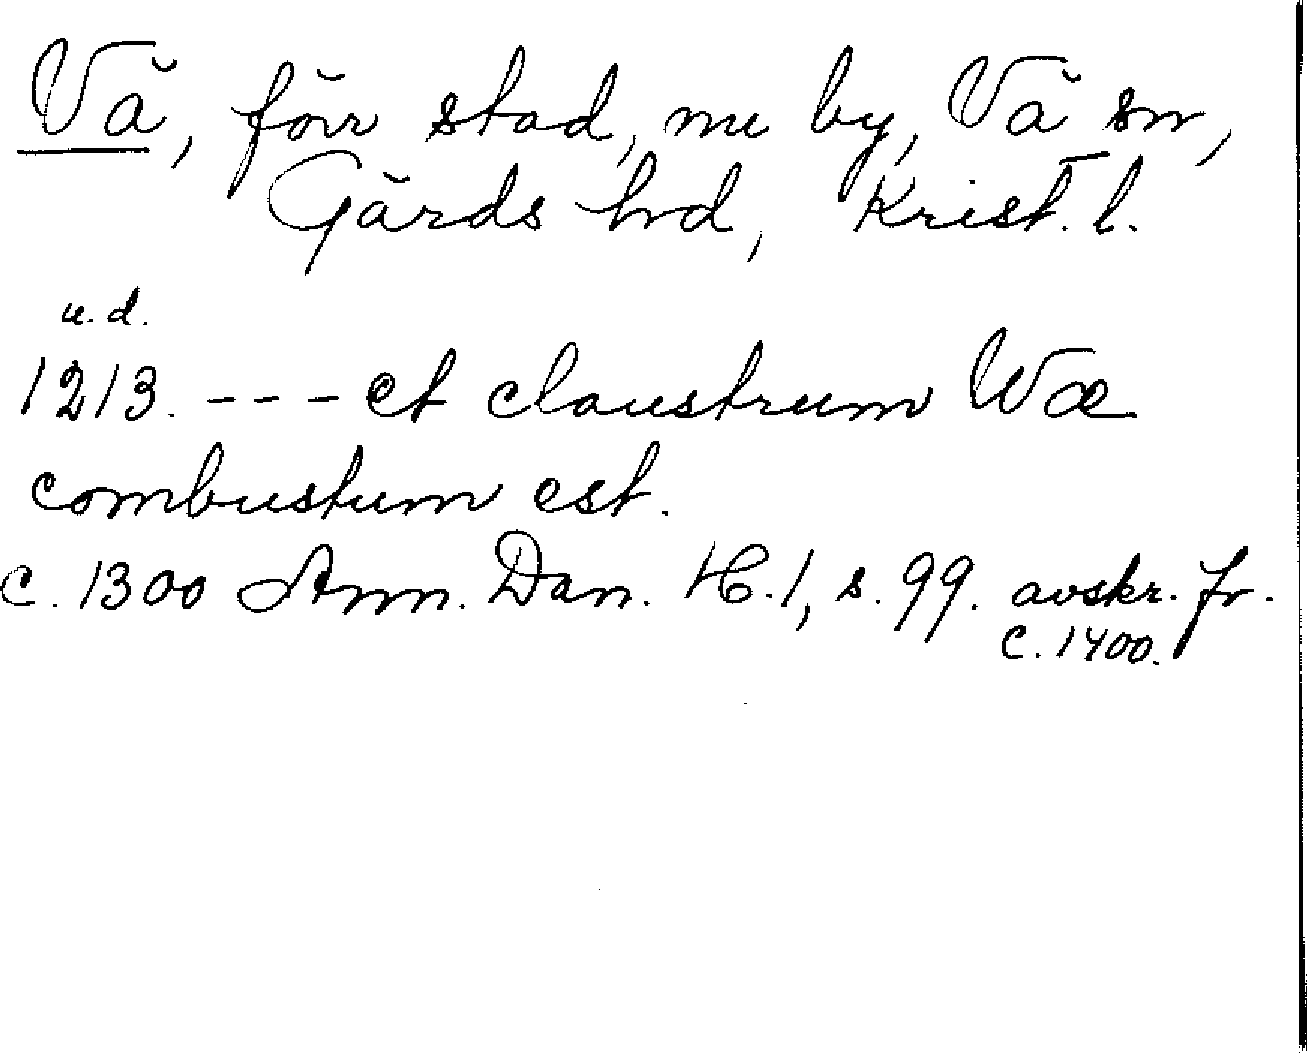 Vä, förr stad, nu by, Vä sn,
Gärds hrd, Krist. l.
u. d.
1213. --- et claustrum Wæ
combustum est.
c. 1300 Ann. Dan. H. 1, s. 99. avskr. fr.
c. 1400.